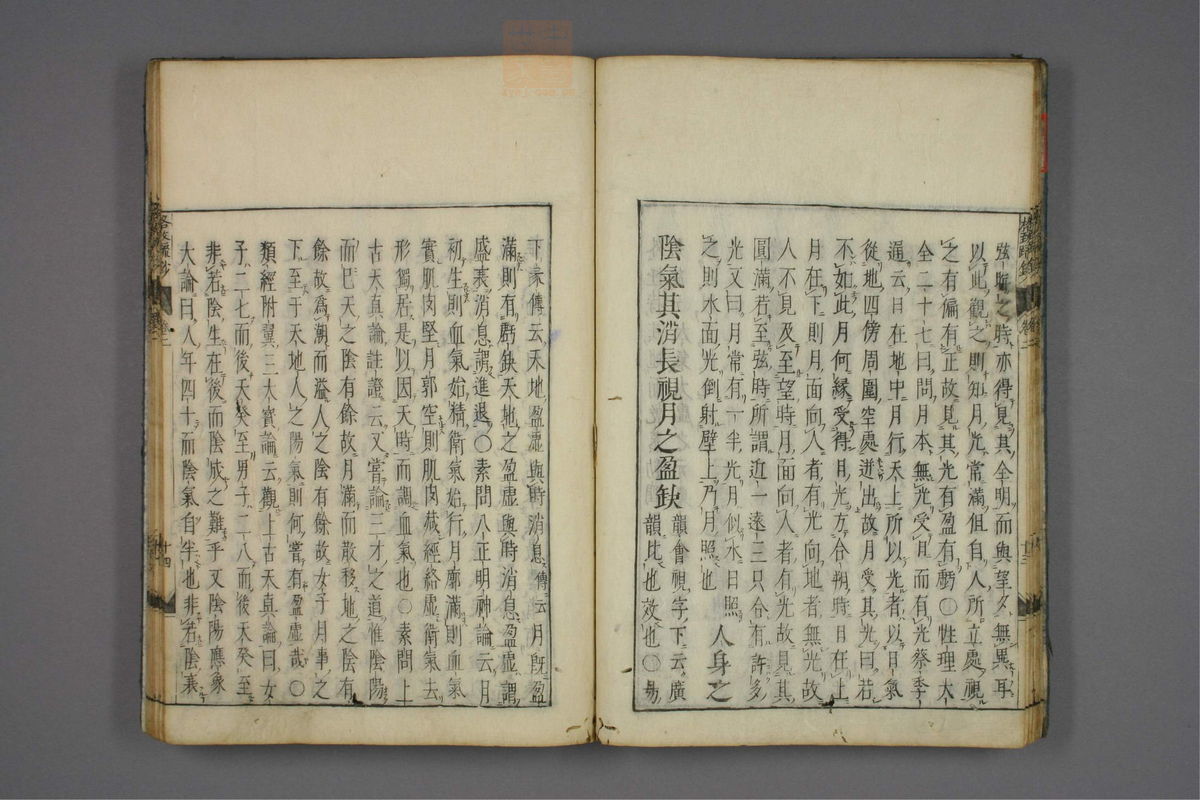 弦晦之時亦得見其全明而與望夕無異耳
以此觀之則知月光常滿但自人所立處視
之有偏有正故見其光有盈有虧○性理大
全二十七曰問月本無光受日而有光蔡季
通云日在地中月行天上所以光者以日氣
從地四傍周圍空處迸出故月受其光曰若
不如此月何緣受得日光方合朔時日在上
月在下則月面向天者有光向地者無光故
人不見及至望時月面向人者有光故見其
圓滿若至弦時所謂近一遠三只合有許多
光又曰月常有一半光月似水日照
之則水面光倒射壁上乃月照也 人身之
陰氣其消長視月之盈缺 韻會視字下云廣
韻比也效也○易
下彖傳云天地盈虛與時消息傳云月既盈
滿則有虧缺天地之盈虛與時消息盈虛謂
盛衰消息謂進退○素問八正神明論云月
初生則血氣始精衛氣始行月廓滿則血氣
實肌肉堅月郭空則肌肉減經絡虛衛氣去
形獨居是以因天時而調血氣也○素問上
古天真論註證云又嘗論三才之道惟陰陽
而已天之陰有餘故月滿而散移地之陰有
餘故為潮而溢人之陰有餘故女子月事之
下至于天地人之陽氣則何嘗有盈虛哉○
類經附翼三大寶論云觀上古天真論曰女
子二七而後天癸至男子二八而後天癸至
非若陰生在後而陰成之難乎又陰陽應象
大論曰人年四十而陰氣自半也非若陰衰
十四